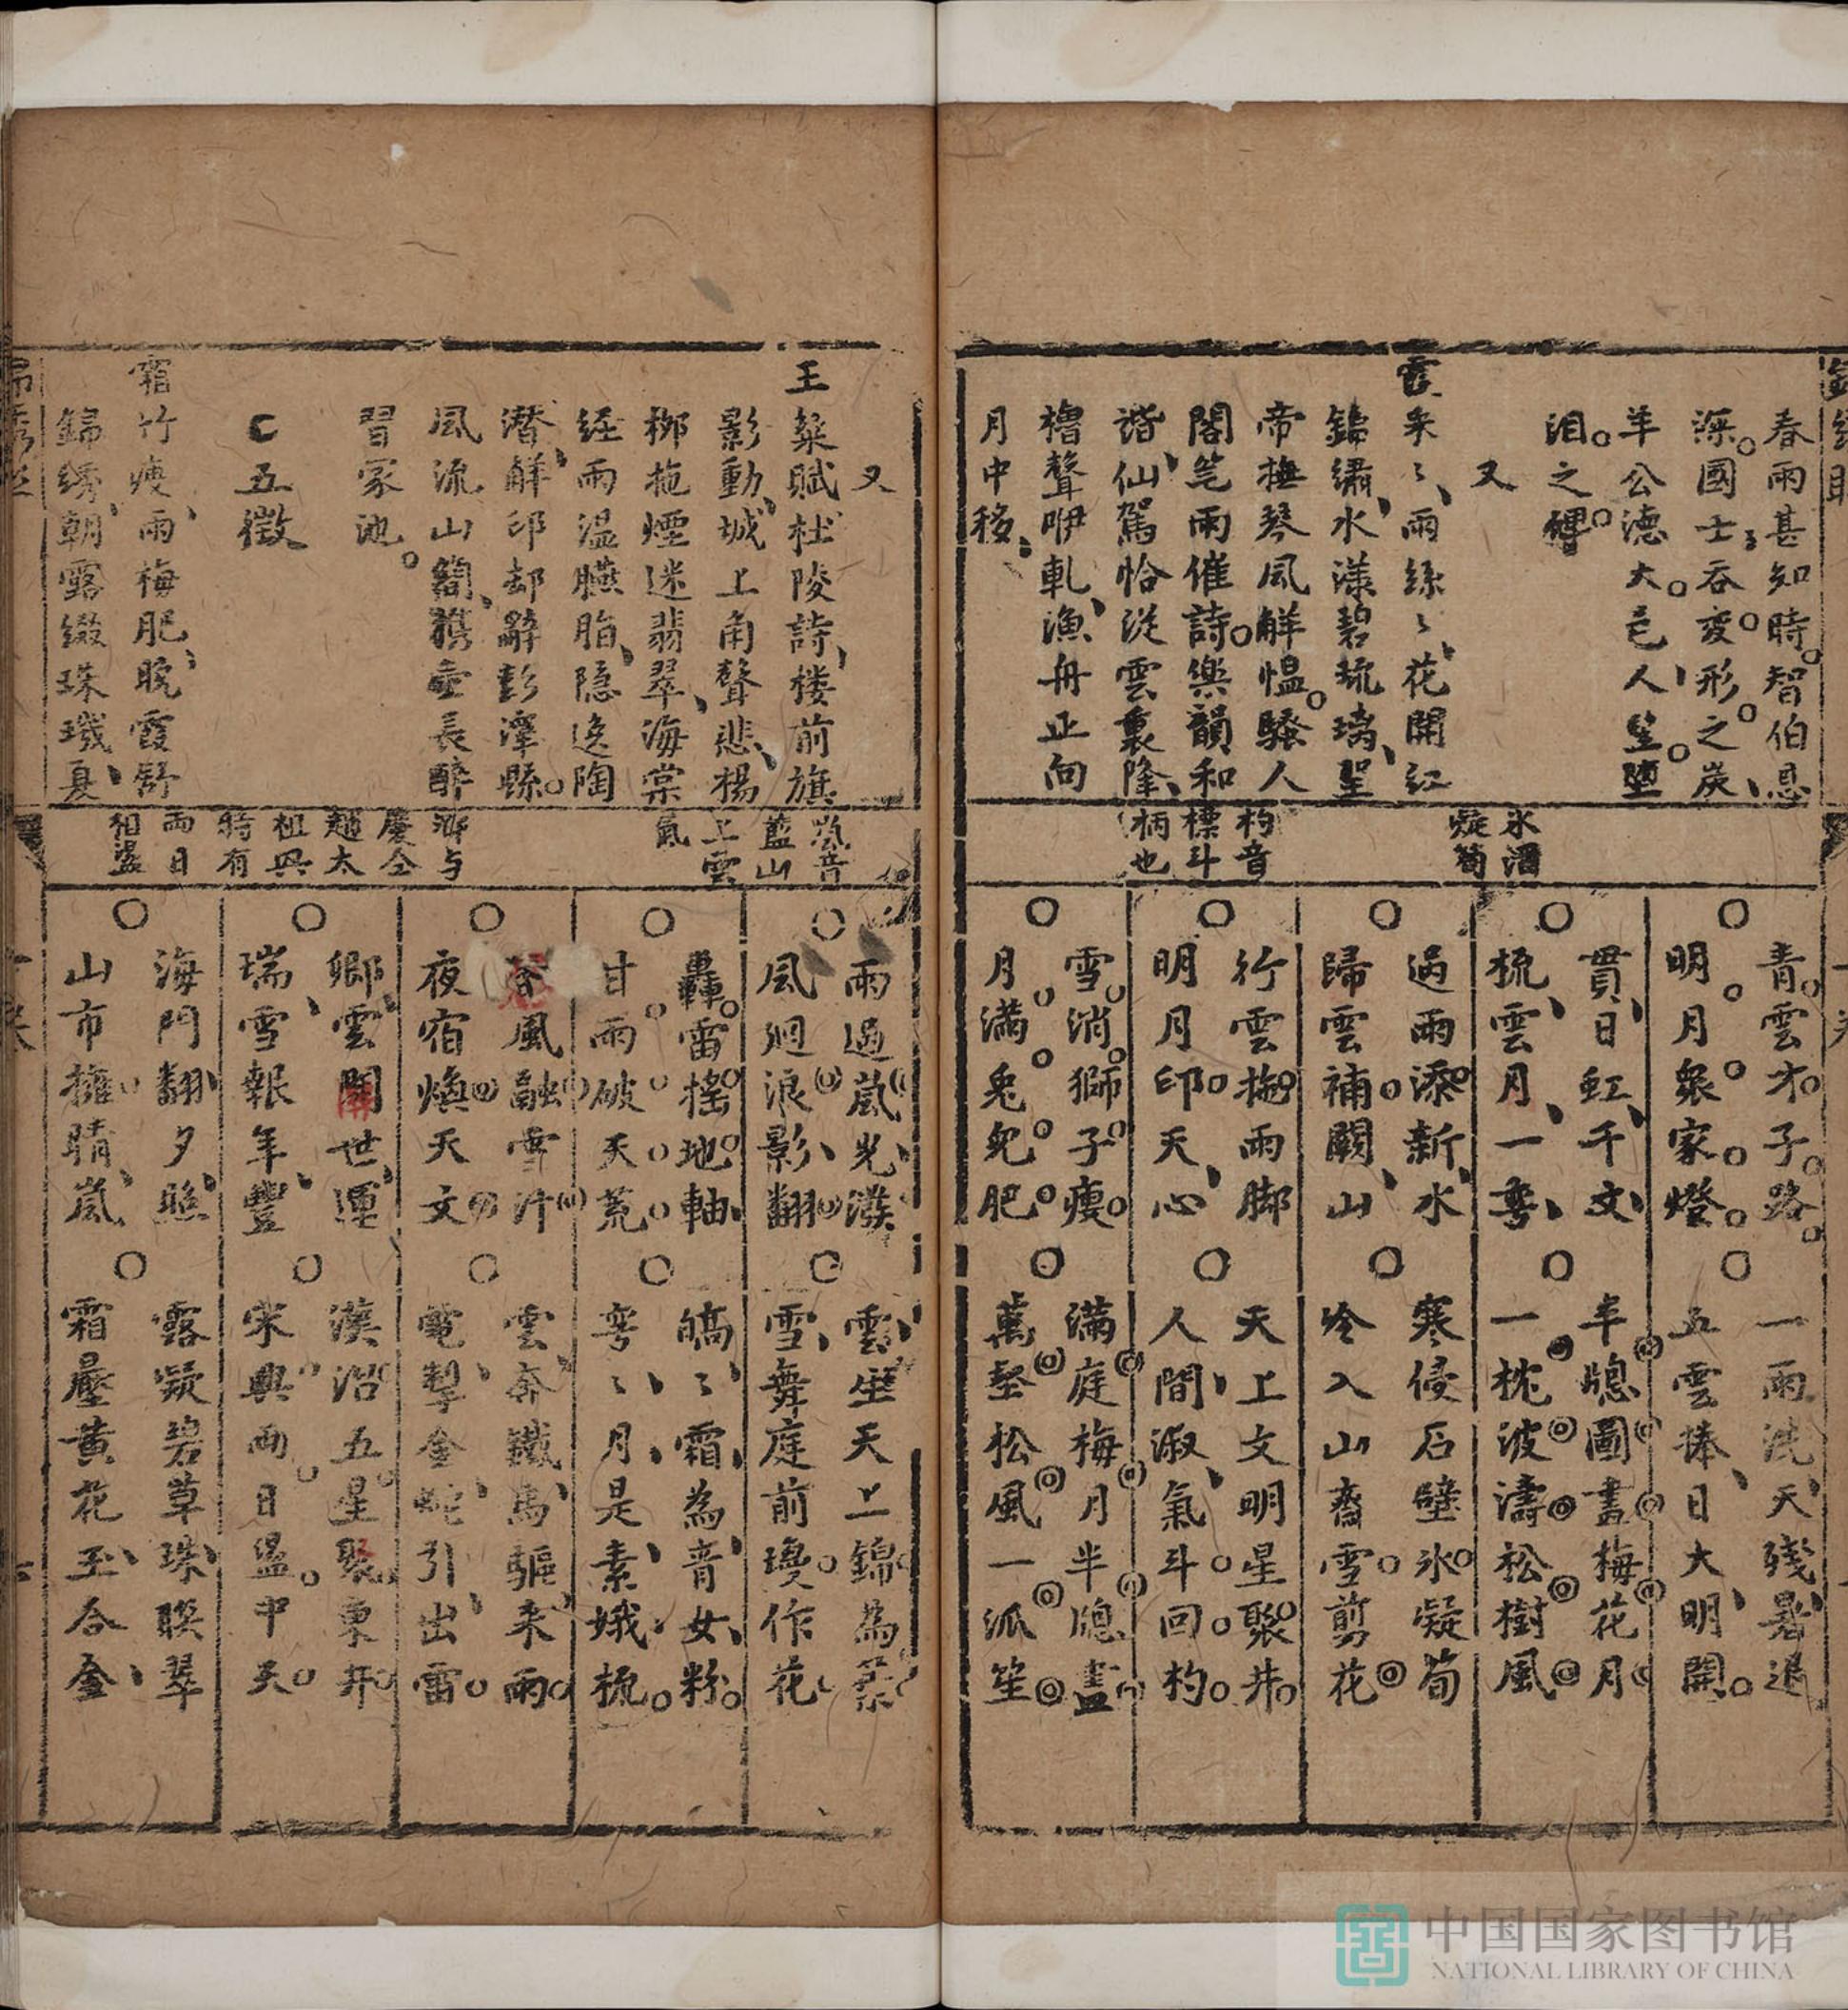 春雨甚知時智伯恩
深國士吞変形之炭
羊公德大邑人堕
泪之碑
又
雲来〻雨絲〻花開紅
錦繡水漾碧琉璃聖
帝梅琴風解愠騷人
閣筆雨催詩樂韻和
諧仙駕恰從雲裏降
櫓聲咿軋漁舟正向
月中移
氷溜
凝筍
杓音
標斗
柄也
青雲才子路
明月衆家燈
貫日虹千丈
梳雲月一彎
過雨添新水
歸雲補闕山
行雲拖雨脚
明月印天心
雪消獅子瘦
月滿兔兒肥
一雨洗天殘暑退
五雲捧日大明開
半牕圖畫梅花月
一枕波濤松樹風
寒侵石壁氷凝筍
冷入山齋雪剪花
天上文明星聚井
人間淑氣斗回杓
滿庭梅月半牕畫
萬壑松風一派笙
又
王粲賦杜陵詩楼前旗
影動城上角聲悲楊
柳拖煙迷翡翠海棠
經雨温臙脂隐逸陶
潜解印却辭彭澤縣
風流山簡攜壷長醉
習家池
五徵
霜竹瘦雨梅肥晚霞舒
錦綉朝露綴珠璣夏
嵐音
藍山
上雲
氣
慶全
趙太
祖興
時有
兩日
相盪
雨過嵐光潑
風迴浪影翻
轟雷搖地軸
甘雨破天荒
春風融雪汁
夜宿煥天文
卿雲開世運
瑞雪報年豐
海門翻夕照
山市擁晴嵐
雲生天上錦為菉
雪舞庭前瓊作花
皜〻霜為青女粉
彎〻月是素娥梳
雲奔鐵馬驅来雨
電掣金蛇引出雷
漢治五星聚東井
宋興兩日盪中天
露凝碧草珠聯翠
霜壓黄花玉合金
中国国家图书馆
NATIONAL LIBRARY OF CHINA